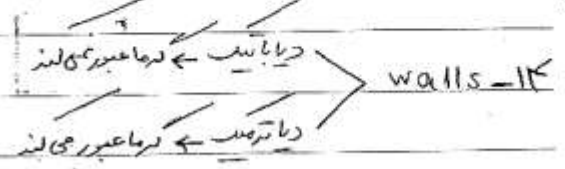 دیاباتیک → گرما عبور نمی کند
walls _ ۱۴
دیاترمیک → گرما عبور می کند